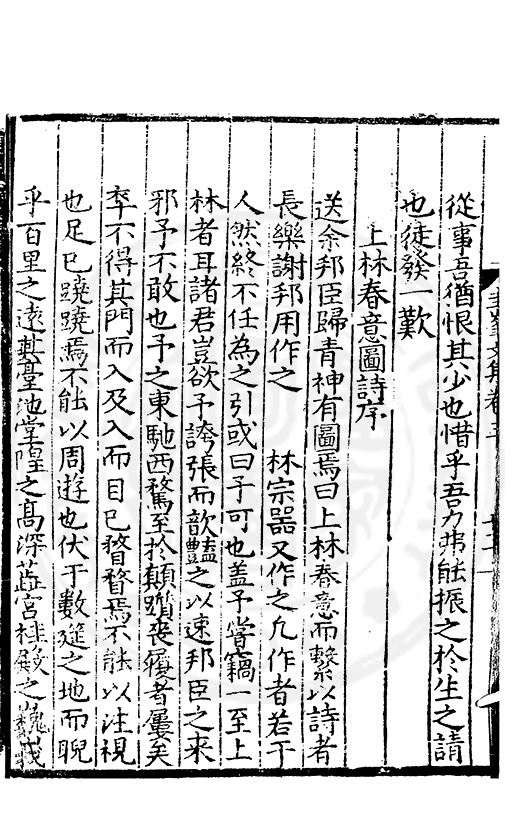 從事吾猶恨其少也惜乎吾力弗能振之於生之請
也徒發一歎
上林春意圖詩序
送余邦臣歸青神有圖焉曰上林春意而繫以詩者
長樂謝邦用作之　林宗器又作之凡作者若干
人然終不任為之引或曰子可也蓋予嘗竊一至上
林者耳諸君豈欲予誇張而歆豔之以速邦臣之来
邪予不敢也予之東馳西騖至於顛躓喪屨者屢矣
率不得其門而入及入而目已瞀瞀焉不能以注視
也足已蹺蹺焉不能以周遊也伏于數筵之地而睨
乎百里之遠其臺池堂隍之高深蕋宮桂殿之巍峩